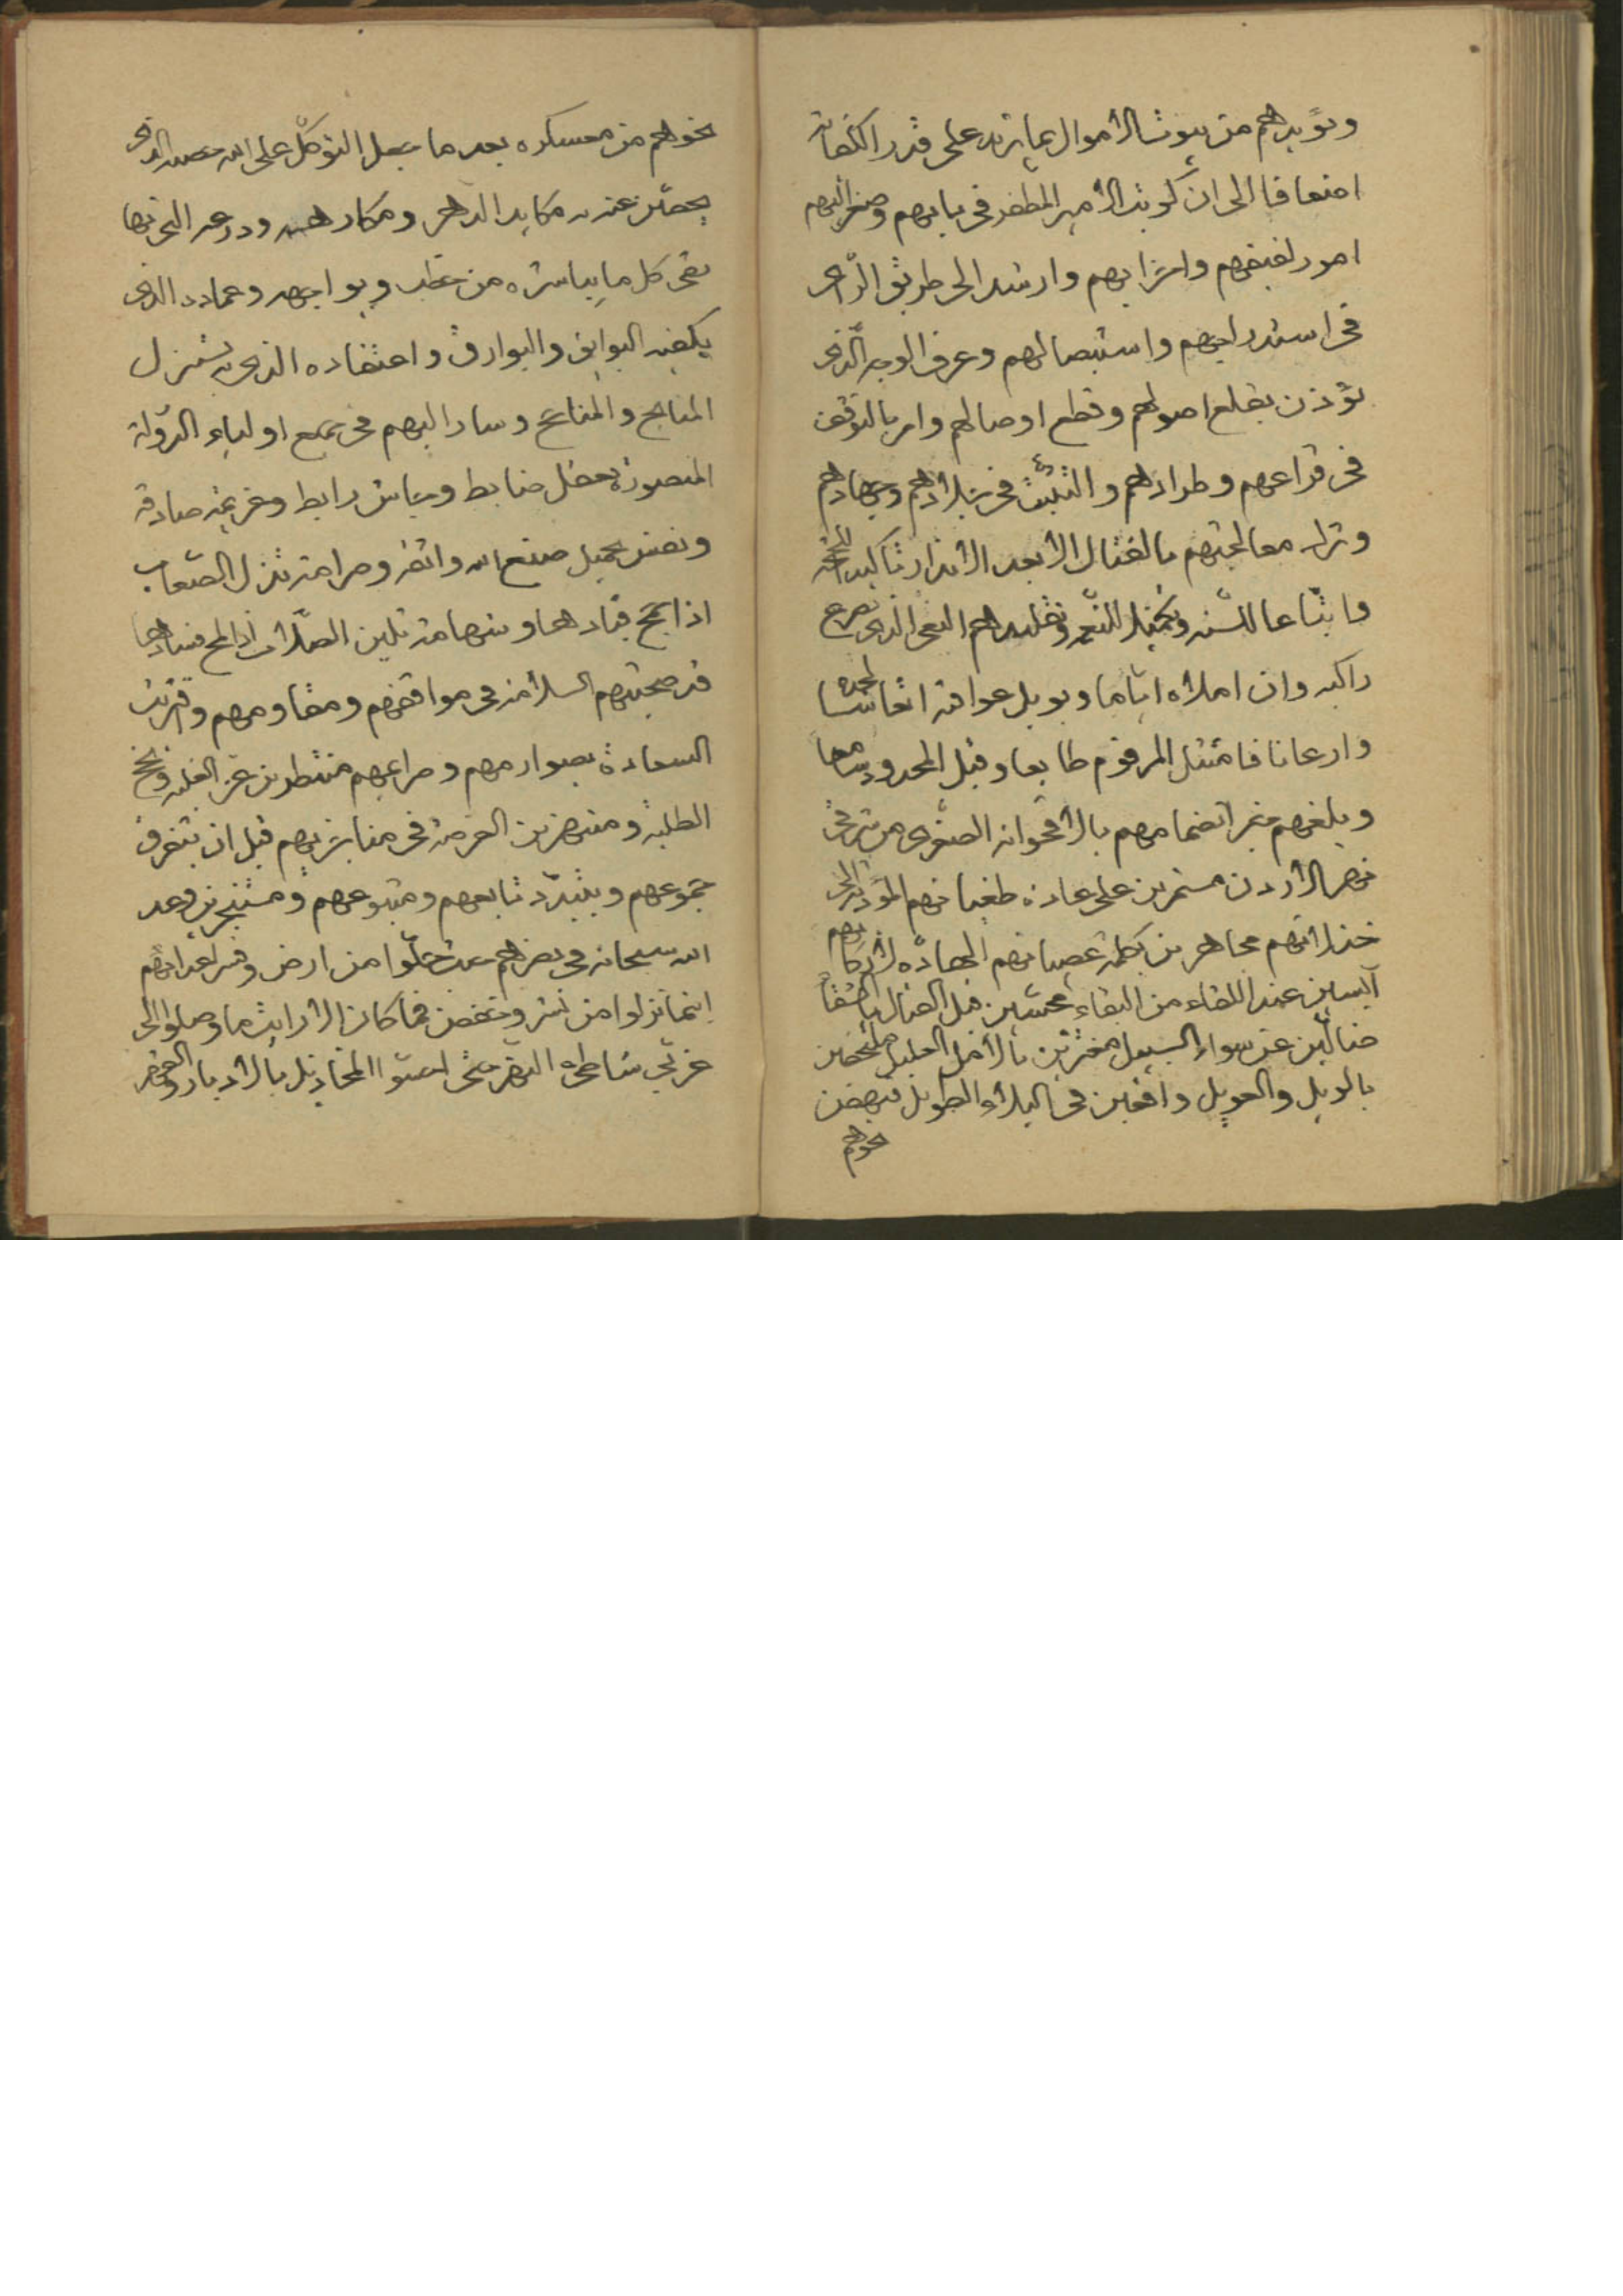 ويؤيدهم من بيوت الاموال بما يزيد على قدر الكفاية
اضعافا الى ان كوتب الامير المظفر في بابهم وصغر اليهم
امور لفيفهم واحزابهم وارشد الى طريق الراى
فى استدراجهم واستيصالهم وعرف الوجه الذى
يؤذن بقلع اصولهم وقطع اوصالهم وامر بالتوقف
فى قراعهم وطرادهم والتثبت فى جلادهم وجهادهم
وترك معالجتهم بالقتال الا بعد الانذار تاكيدا للحجة
واتباعا للسنة وتقليدهم البغى الذى يصرع
راكبه وان املاه اياما
وارعانا فامتثل المرقوم طائعا وقبل المحدود سامعا
وبلغهم خبر انضمامهم بالاقحوانه الصغرى من شرقى
نهر الاردن مستمرين على عادة طغيانهم المؤدية الى
خذلانهم مجاهرين بكلمة عصيانهم الهادة لاركانهم
آيسين عند اللقاء من البقاء قبل القتال بالشقاء
ضالين عن سواء السبيل مغترين بالامل العليل
بالويل والعويل واقعين فى البلاء الطويل فنهض
نحوهم
نحوهم من معسكره بعد ما جعل التوكل على الله حصنه الذى
يحصن عنده مكايد الدهر ومكارهه ودرعه التى بها
يقى كل ما يباشره من خطب ويواجهه وعماده الذى
يكفيه البوايق والبوارق واعتقاده الذى به يستنزل
المناهج والمناجح وسار اليهم فى جميع اولياء الدولة
المنصورة بعقل ضابط وجاش رابط وعزيمة صادقة
ونفس بجميل صنع الله واثقة وصرامة تذل الصعاب
اذا جمح قيادها وشهامة تلين الصلاب اذا لج فسادها
قد صحبتهم السلامة فى مواقفهم ومقاومهم واقترنت
السعادة بصوارمهم وعزايمهم منتظرين عز الغلبة ونجح
الطلبة ومنتهزين الفرصة فى مناجزتهم قبل ان يتفرق
جموعهم ويتبدد تابعهم ومتبوعهم ومستنجزين وعد
الله سبحانه فى نصرهم حيث حلوا من ارض وقسر اعدائهم
اينما نزلوا من نشز وخفض فما كان الا ريث ما وصلوا الى
غربى شاطىء النهر حتى المخاذيل بالادبار